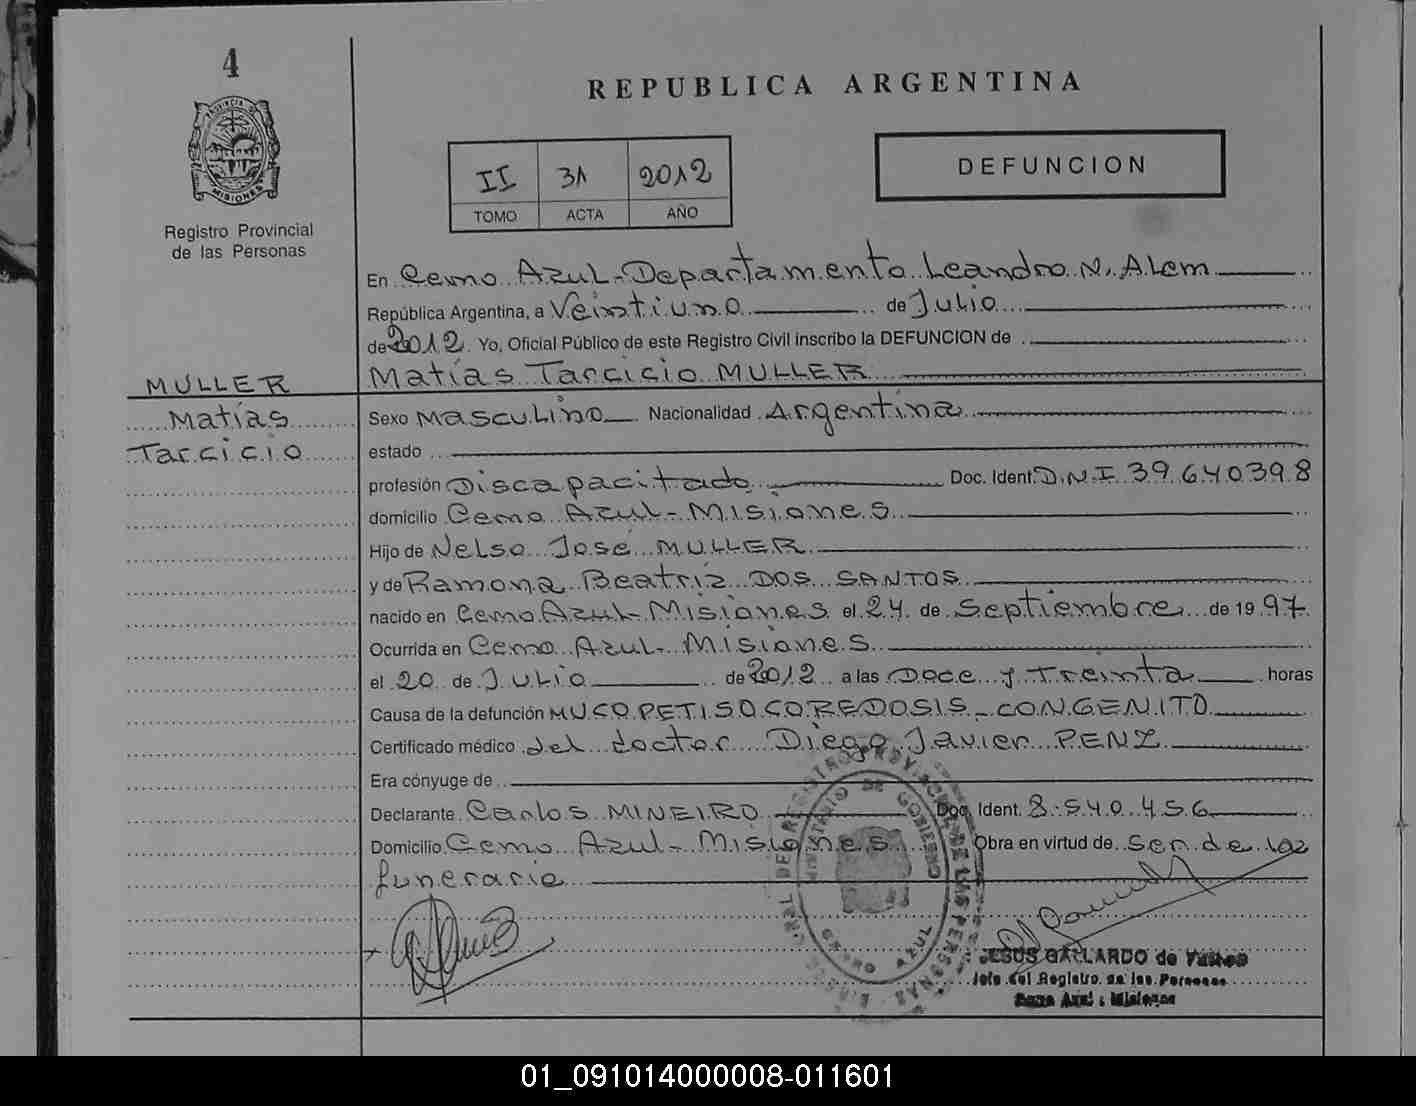 4
PROVINCIA DE
MISIONES
Registro Provincial
de las Personas
REPUBLICA ARGENTINA
II 31 2012
TOMO ACTA AÑO
DEFUNCION
En Cerro Azul - Departamento Leandro N. Alem
República Argentina, a Veintiuno de Julio
de 2012. Yo, Oficial Público de este Registro Civil inscribo la DEFUNCION de
Matías Tarcicio MULLER
MULLER
Matías
Tarcicio
Sexo Masculino Nacionalidad Argentina
estado
profesión Discapacitado Doc. Ident. D.N.I 39.640.398
domicilio Cerro Azul - Misiones
Hijo de Nelso José MULLER
y de Ramona Beatriz DOS SANTOS
nacido en Cerro Azul - Misiones el 24 de Septiembre de 1997
Ocurrida en Cerro Azul - Misiones
el 20 de Julio de 2012 a las Doce y Treinta horas
Causa de la defunción MUCOPETISOCOREDOSIS - CONGENITO
Certificado médico del doctor Diego Javier PENZ
Era cónyuge de
Declarante Carlos MINEIRO Doc. Ident. 8.540.456
Domicilio Cerro Azul - Misiones Obra en virtud de Ser de la
funeraria
MINISTERIO DE GOBIERNO
CERRO AZUL
JESUS GALLARDO de
Jefe del Registro de las Personas
Cerro Azul - Misiones
01_091014000008-011601